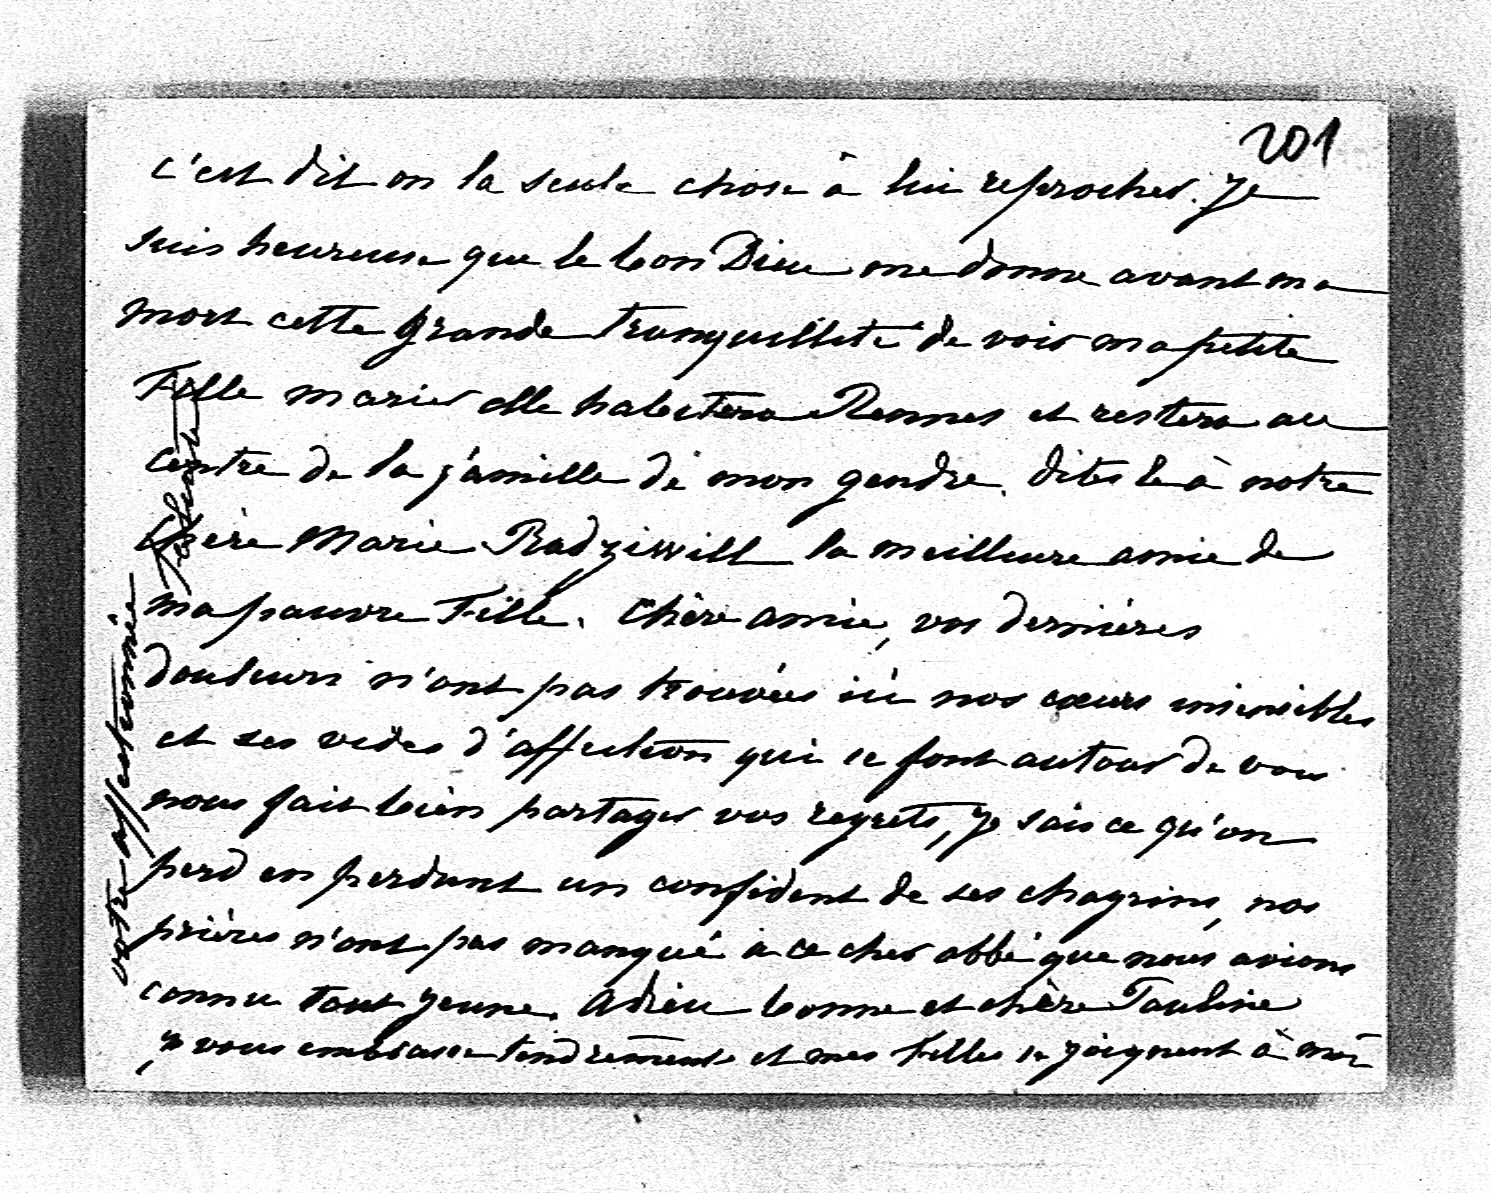 201
c'est dit on la seule chose à lui reprocher. Je
suis heureuse que le bon Dieu me donne avant ma
mort cette grande tranquillité de voir ma petite
Fille marier elle habitera Rennes et restera au
centre de la famille de mon gendre. dites le à notre
chère Marie Radziwill la meilleure amie de
ma pauvre Fille. Chère amie, vos dernières
douleurs n'ont pas trouvées ici nos cœurs insensibles
et ses vides d'affection qui se font autour de vous
nous fait bien partager vos regrets, je sais ce qu'on
perd en perdant un confident de ses chagrins, nos
prières n'ont pas manqué à ce cher abbé que nous avions
connu tout jeune. Adieu bonne et chère Pauline
je vous embrasse tendrement et mes filles se joignent à moi
votre affectionnée